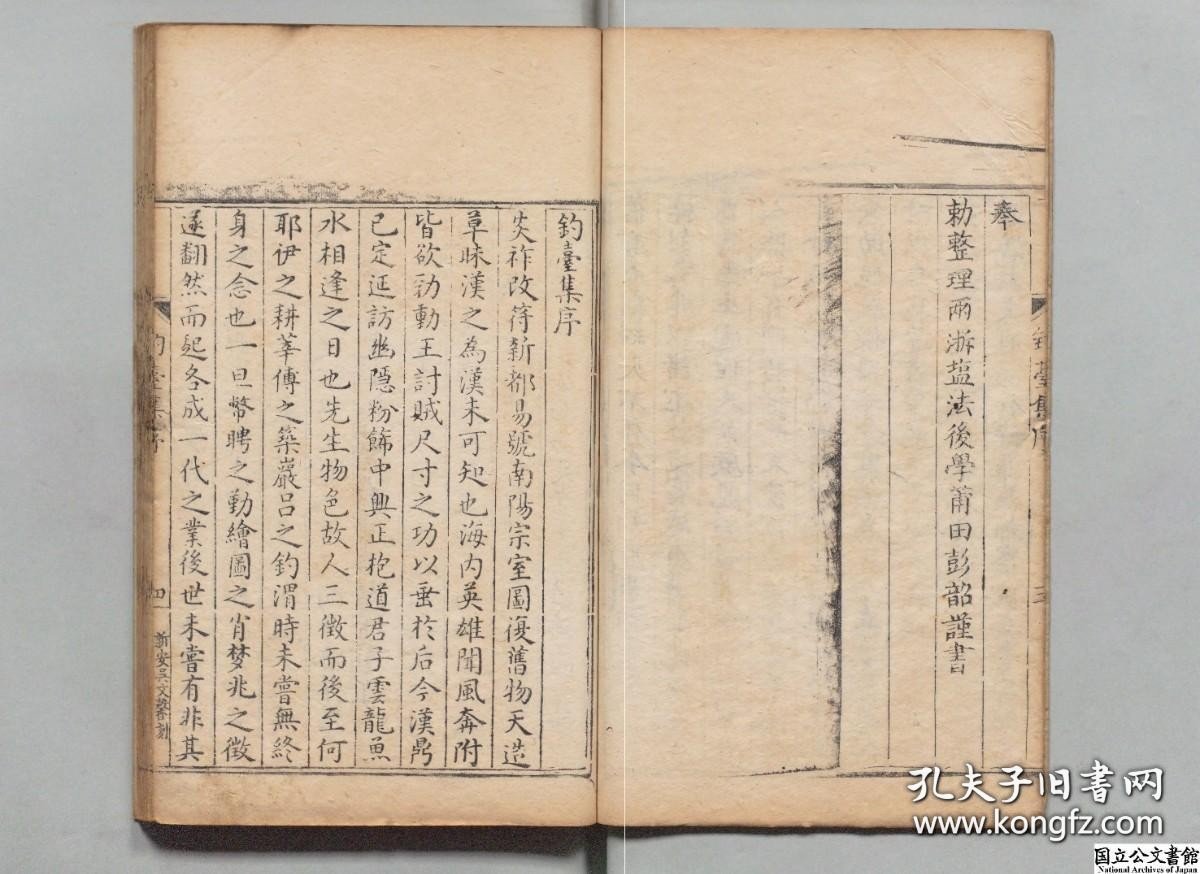 奉
勅整理兩浙塩法後學莆田彭韶謹書
釣臺集序
炎祚改符新都易號南陽宗室圖復舊物天造
草昧漢之為漢未可知也海内英雄聞風奔附
皆欲効動王討賊尺寸之功以垂於后今漢鼎
已定延訪幽隠粉飾中興正抱道君子雲龍魚
水相逢之日也先生物色故人三徴而後至何
耶伊之耕莘傅之築巖吕之釣渭時未嘗無終
身之念也一旦幣聘之勤繪圖之肖梦兆之徴
遂翻然而起各成一代之業後世未嘗有非其
釣臺集序
四
孔夫子旧书网
www.kongfz.com
国立公文書館
National Archives of Japan